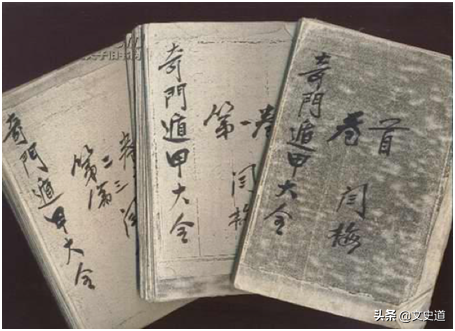 奇門遁甲大全
卷首
闫梅
奇門遁甲大全
第一卷
闫梅
奇門遁甲大全
第二
第三
卷
闫
头条 @文史道